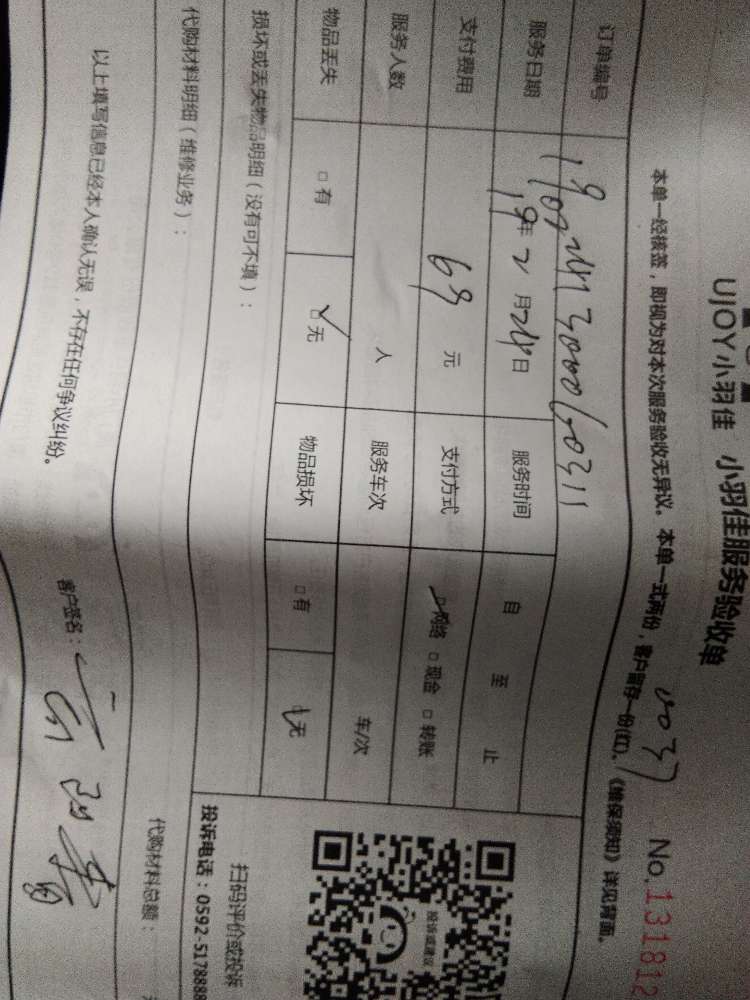 UJOY小羽佳 小羽佳服务验收单
No.131812
本单一经核签，即视为对本次服务验收无异议。本单一式两份，客户留存一份(红)。《维保须知》详见背面。
订单编号
服务日期 19年2月24日 服务时间 自 至 止
支付费用 69元 支付方式 □网络 □现金 □转账
服务人数 人 服务车次 车/次
物品丢失 □有 □无 物品损坏 □有 □无
损坏或丢失物品明细（没有可不填）：
扫码评价或投诉
投诉电话：0592-5178888
投诉或建议
代购材料明细（维修业务）： 代购材料总额：
以上填写信息已经本人确认无误，不存在任何争议纠纷。 客户签名：